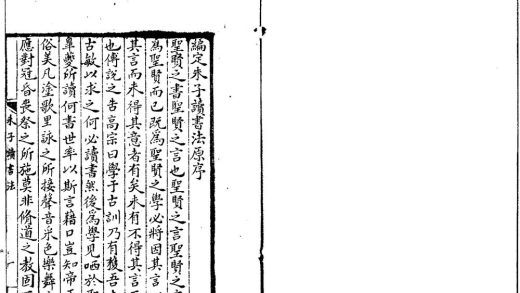 編定朱子讀書法原序
聖賢之書聖賢之言也聖賢之言聖賢之
為聖賢而已既為聖賢之學必將因其言
其言而未得其意者有矣未有不得其言而
也傅說之告高宗曰學于古訓乃有獲吾
古敏以求之何必讀書然後為學見哂於聖
臯夔所讀何書世率以斯言藉口豈知帝王
俗美凡塗歌里詠之所接聲音采色樂舞
應對冠昏喪祭之所施莫非脩道之教固
朱子讀書法